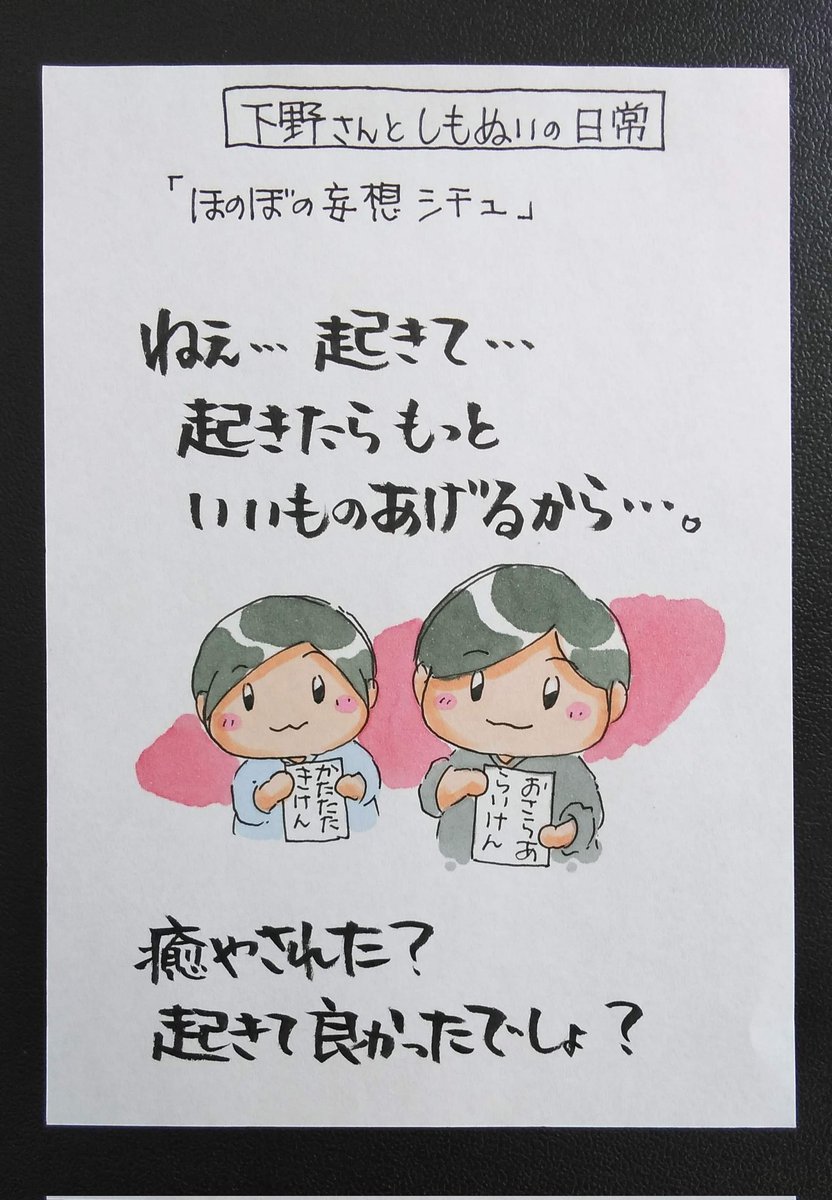 下野さんとしもぬいの日常
「ほのぼの妄想シチュ」
ねぇ…起きて…
起きたらもっと
いいものあげるから…。
かたたた
きけん
おさらあ
らいけん
癒やされた？
起きて良かったでしょ？